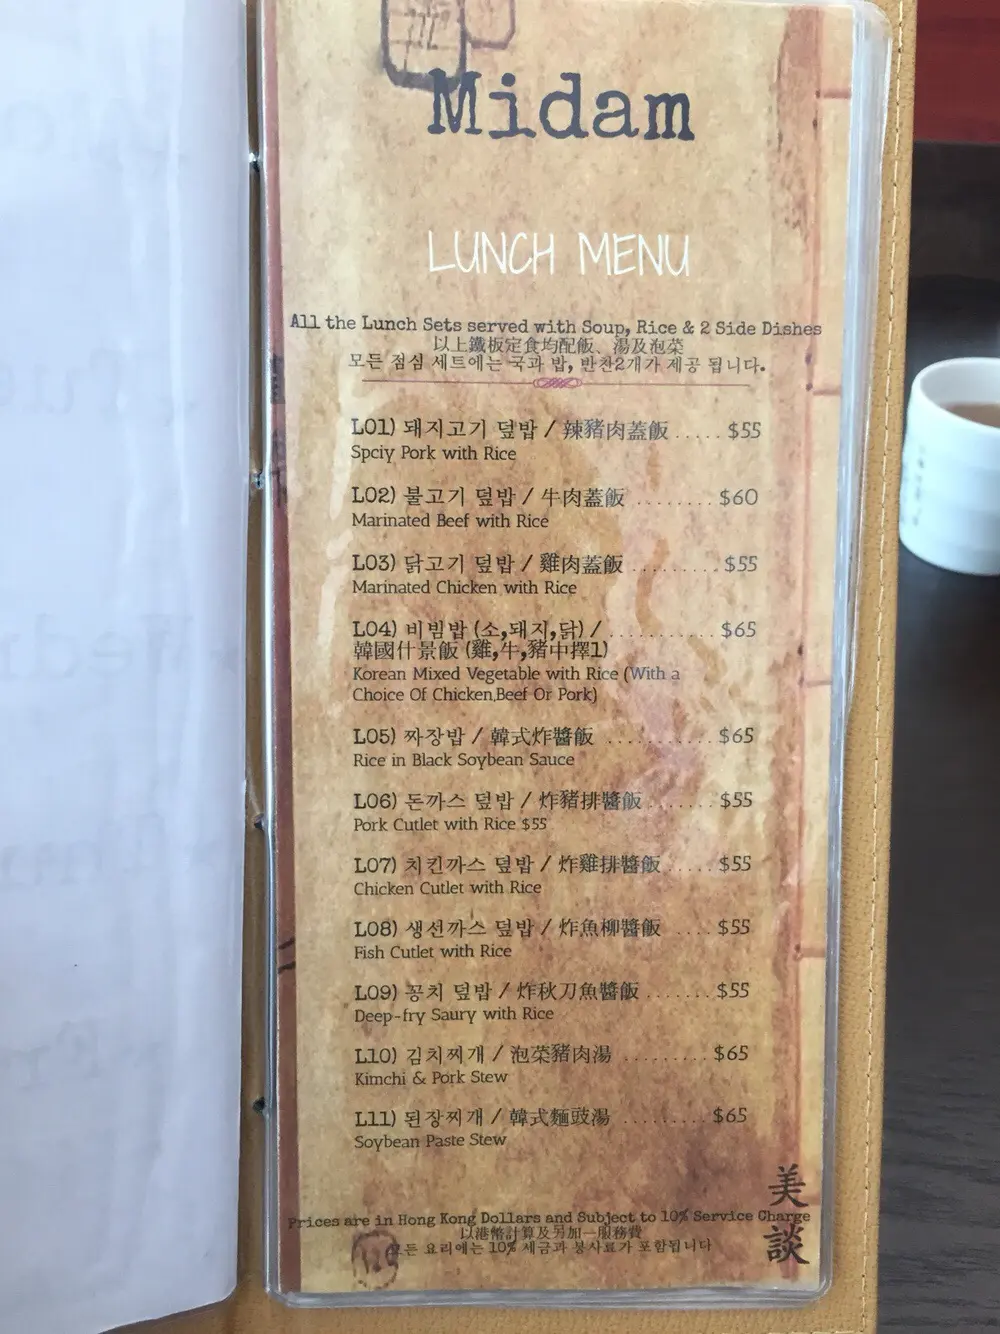 Midam
LUNCH MENU
All the Lunch Sets served with Soup, Rice & 2 Side Dishes
以上鐵板定食均配飯、湯及泡菜
모든 점심 세트에는 국과 밥, 반찬2개가 제공 됩니다.
L01) 돼지고기 덮밥 / 辣豬肉蓋飯 ..... $55
Spciy Pork with Rice
L02) 불고기 덮밥 / 牛肉蓋飯 ........ $60
Marinated Beef with Rice
L03) 닭고기 덮밥 / 雞肉蓋飯 ......... $55
Marinated Chicken with Rice
L04) 비빔밥 (소,돼지,닭) / ........... $65
韓國什景飯 (雞,牛,豬中擇1)
Korean Mixed Vegetable with Rice (With a
Choice Of Chicken,Beef Or Pork)
L05) 짜장밥 / 韓式炸醬飯 ........... $65
Rice in Black Soybean Sauce
L06) 돈까스 덮밥 / 炸豬排醬飯 ....... $55
Pork Cutlet with Rice $55
L07) 치킨까스 덮밥 / 炸雞排醬飯 ..... $55
Chicken Cutlet with Rice
L08) 생선까스 덮밥 / 炸魚柳醬飯 .... $55
Fish Cutlet with Rice
L09) 꽁치 덮밥 / 炸秋刀魚醬飯 ....... $55
Deep-fry Saury with Rice
L10) 김치찌개 / 泡菜豬肉湯 ......... $65
Kimchi & Pork Stew
L11) 된장찌개 / 韓式麵豉湯 ......... $65
Soybean Paste Stew
美談
Prices are in Hong Kong Dollars and Subject to 10% Service Charge
以港幣計算及另加一服務費
모든 요리에는 10% 세금과 봉사료가 포함됩니다